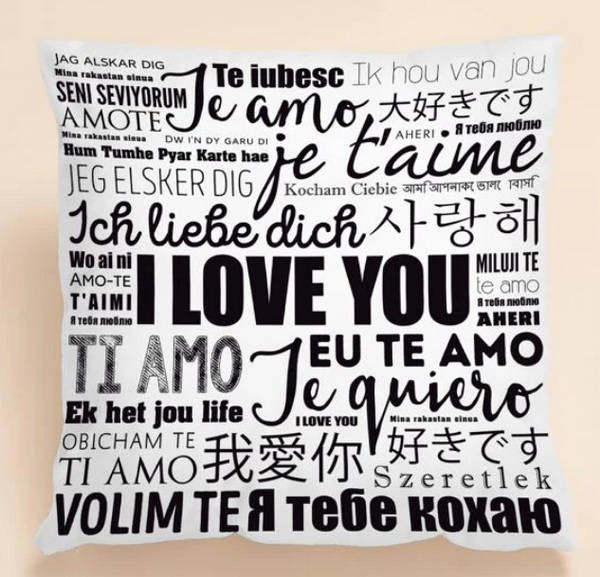 JAG ALSKAR DIG
Mina rakastan sinua
SENI SEVIYORUM
AMOTE
Mina rakastan sinua
Te iubesc
Ik hou van jou
Te amo
大好きです
DW I'N DY GARU DI
AHERI
Я тебя люблю
Hum Tumhe Pyar Karte hae
je t'aime
JEG ELSKER DIG
Kocham Ciebie
Ich liebe dich
사랑해
Wo ai ni
AMO-TE
T'AIMI
Я тебя люблю
I LOVE YOU
MILUJI TE
te amo
Я тебя люблю
AHERI
TI AMO
EU TE AMO
Te quiero
Ek het jou life
I LOVE YOU
Mina rakastan sinua
OBICHAM TE
TI AMO
我愛你
好きです
Szeretlek
VOLIM TE
Я тебе кохаю